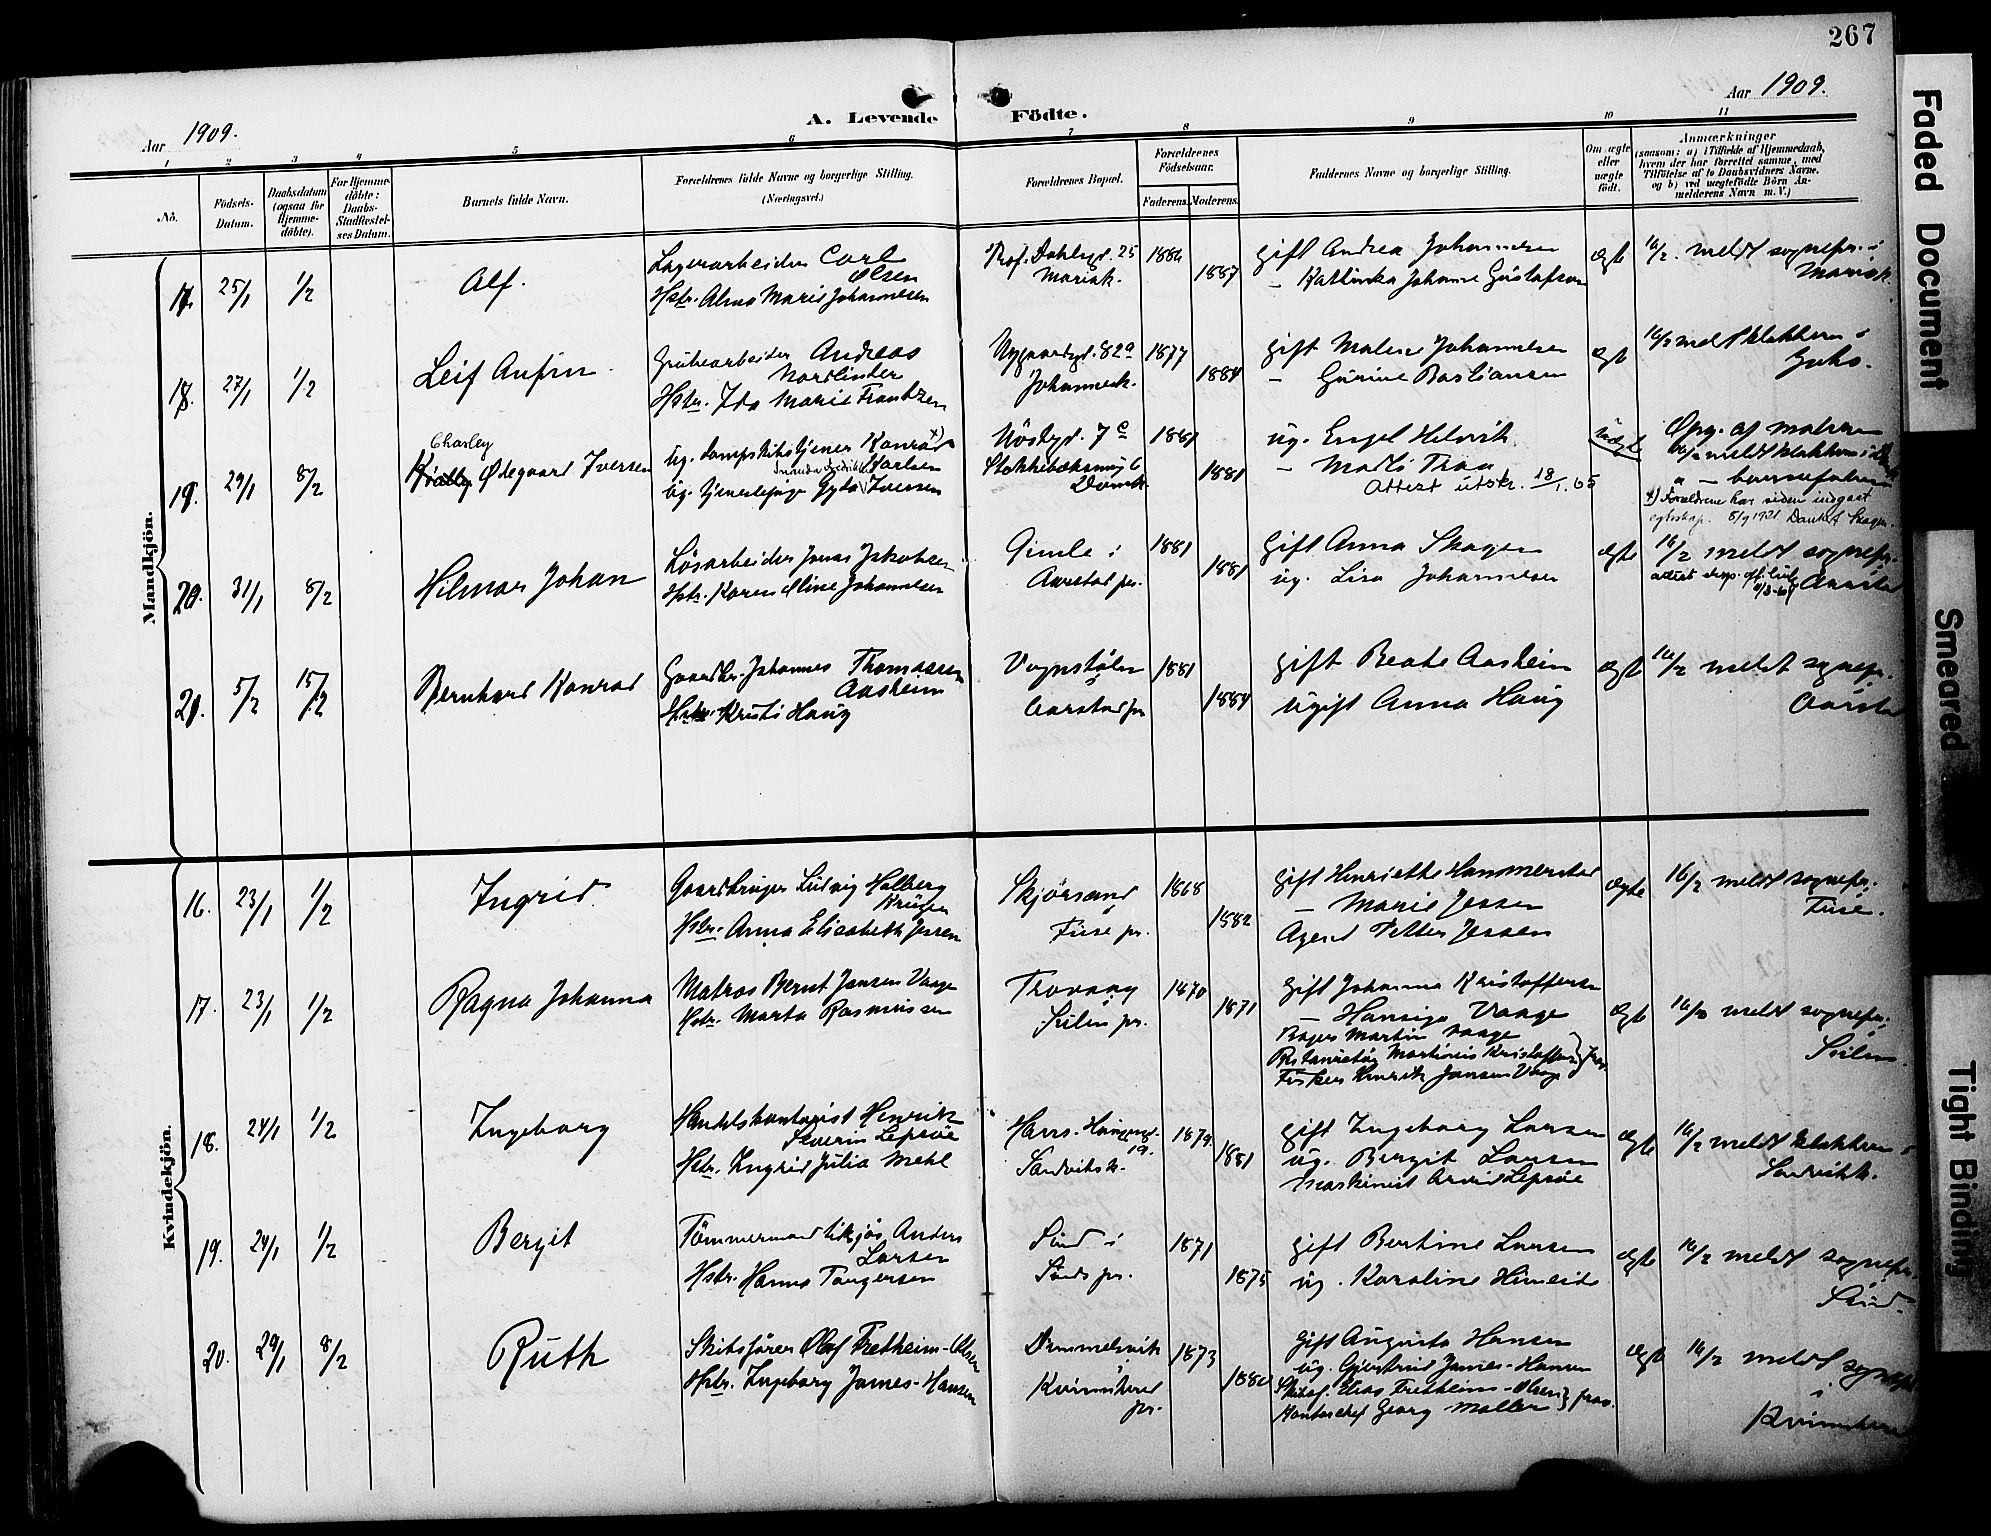 267
Aar 1909.
A. Levende Födte.
Aar 1909.
1 2 3 4 5 6 7 8 9 10 11
No.
Födsels-Datum.
Daabsdatum (ogsaa for Hjemme-döbte).
For Hjemme-döbte: Daabs-Stadfæstel-ses Datum.
Barnets fulde Navn.
Forældrenes fulde Navne og borgerlige Stilling.
(Næringsvei.)
Forældrenes Bopæl.
Forældrenes Födselsaar.
Faderens. Moderens.
Faddernes Navne og borgerlige Stilling.
Om ægte eller uægte födt.
Anmærkninger
(saasom: a) i Tilfælde af Hjemmedaab,
hvem der har forrettet samme, med
Tilföielse af to Daabsvidners Navne,
og b) ved uægtefödte Börn An-
melderens Navn m. V.)
Mandkjön.
17. 25/1 1/2 Alf.
Lagerarbeider Carl Olsen
Hstr. Alma Marie Johannesen
Prof. Dahlsgd. 25
Mariak.
1886 1887
gift Andrea Johannesen
— Kathinka Johanne Gustafson
ægte
16/2 meldt sognepr. i
Mariak.
18. 27/1 1/2 Leif Anfin
Grubearbeider Andreas
Nordlinder
Hstr. Ida Marie Frantzen
Nygaardsgd. 82a
Johannesk.
1877 1884
gift Malene Johannesen
— Gurine Bastiansen
ægte
16/2 meldt klokkeren i
Johs.
19. 29/1 8/2 Charley
Ödegaard Iversen
ug. Dampskibstjener Konrad x)
Karlsen
ug. tjenestepige Gyda Iversen
Nöstegd. 7c
Domk.
1881 1881
ug. Engel Helvik
— Madli Traa
Attest utstr. 18/1.65
uægte
Opg. af moderen
16/2 meldt klokkeren i
" — barnefaderen
x) Forældrene har siden indgaat
egteskap. 8/9 1921
20. 31/1 8/2 Hilmar Johan
Løsarbeider Jonas Jakobsen
Hstr. Karen Oline Johannesen
Gimle i
Aarstad pr.
1881 1881
gift Anna Skagen
ug. Lisa Johannesen
ægte
16/2 meldt sognepr.
Aarstad
21. 5/2 15/2 Bernhard Konrad
Gaardbr. Johannes Thomassen
Aasheim
Hstr. Kristi Haug
Vognstølen
i
Aarstad pr
1881 1884
gift Beate Aasheim
ugift Anna Haug
ægte
16/2 meldt sognepr.
Aarstad
Kvindekjön.
16. 23/1 1/2 Ingrid.
Gaardbruger Ludvig Holberg
Krüger
Hstr. Anna Elisabeth Jessen
Skjørsand
i
Fuse pr.
1868 1882
gift Henriette Hammerstad
— Marie Jessen
Agent Petter Jessen
ægte
16/2 meldt sognepr.
Fuse.
17. 23/1 1/2 Ragna Johanna
Matros Bernt Jansen Vaage
Hstr. Marta Rasmussen
Trovaag
i
Sulen pr.
1870 1871
gift Johanna Kristoffersen
— Hansigo Vaage
Bager Martin Vaage
Restauratør Martinius Kristoffersen } frav.
Fisker Henrik Jansen Vaage
ægte
16/2 meldt sognepr. i
Sulen.
18. 24/1 1/2 Ingeborg
Handelskontorist Henrik
Severin Lepsøe
Hstr. Ingrid Julia Mehl
Hans-Haugesgd.
19.
Sandviksk.
1879. 1881
gift Ingeborg Larsen
ug. Bergit Larsen
Maskinist Arvid Lepsøe
ægte
16/2 meldt klokkeren i
Sandviksk.
19. 24/1 1/2 Bergit
Tömmermand tilsjøs Anders
Larsen
Hstr. Hanna Tangersen
Sund i
Sunds pr.
1871 1875
gift Bertine Larsen
ug. Karoline Himeide
ægte
16/2 meldt sognepr.
i
Sund.
20. 29/1 8/2 Ruth
Skibsfører Olaf Fretheim-Olsen
Hstr. Ingeborg James-Hansen
Dimmelsvik
i
Kvinnherred
pr.
1873 1880
gift Augusta Hansen
ug. Gjertrud James-Hansen
Skibsf. Elias Fretheim-Olsen } frav.
Kontorchef Georg Møller
ægte
16/2 meldt sognepr.
i
Kvinnherred
Faded Document
Smeared
Tight Binding